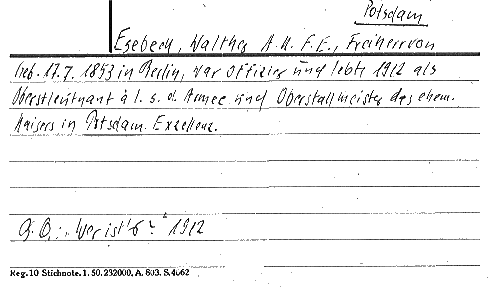 Potsdam
Esebeck, Walther A. H. F. E., Freiherr von
Geb. 17. 7. 1853 in Berlin, war Offizier und lebte 1912 als
Oberstleutnant à l. s. d. Armee und Oberstallmeister des ehem.
Kaisers in Potsdam. Exzellenz.
Q. O.: "Wer ist's" 1912
Reg. 10 Stichnote. 1. 50. 232000, A. 803. S. 4062